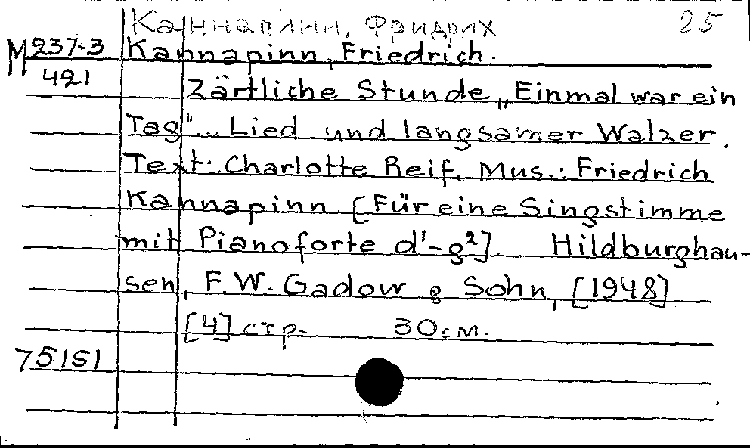 Каннапинн, Фридрих 25
М 237-3 Kannapinn, Friedrich.
421
Zärtliche Stunde „Einmal war ein
Tag"... Lied und langsamer Walzer.
Text: Charlotte Reif. Mus.: Friedrich
Kannapinn [Für eine Singstimme
mit Pianoforte d¹-g²]. Hildburghau-
sen, F.W. Gadow & Sohn, [1948]
[4] стр. 30см.
75151